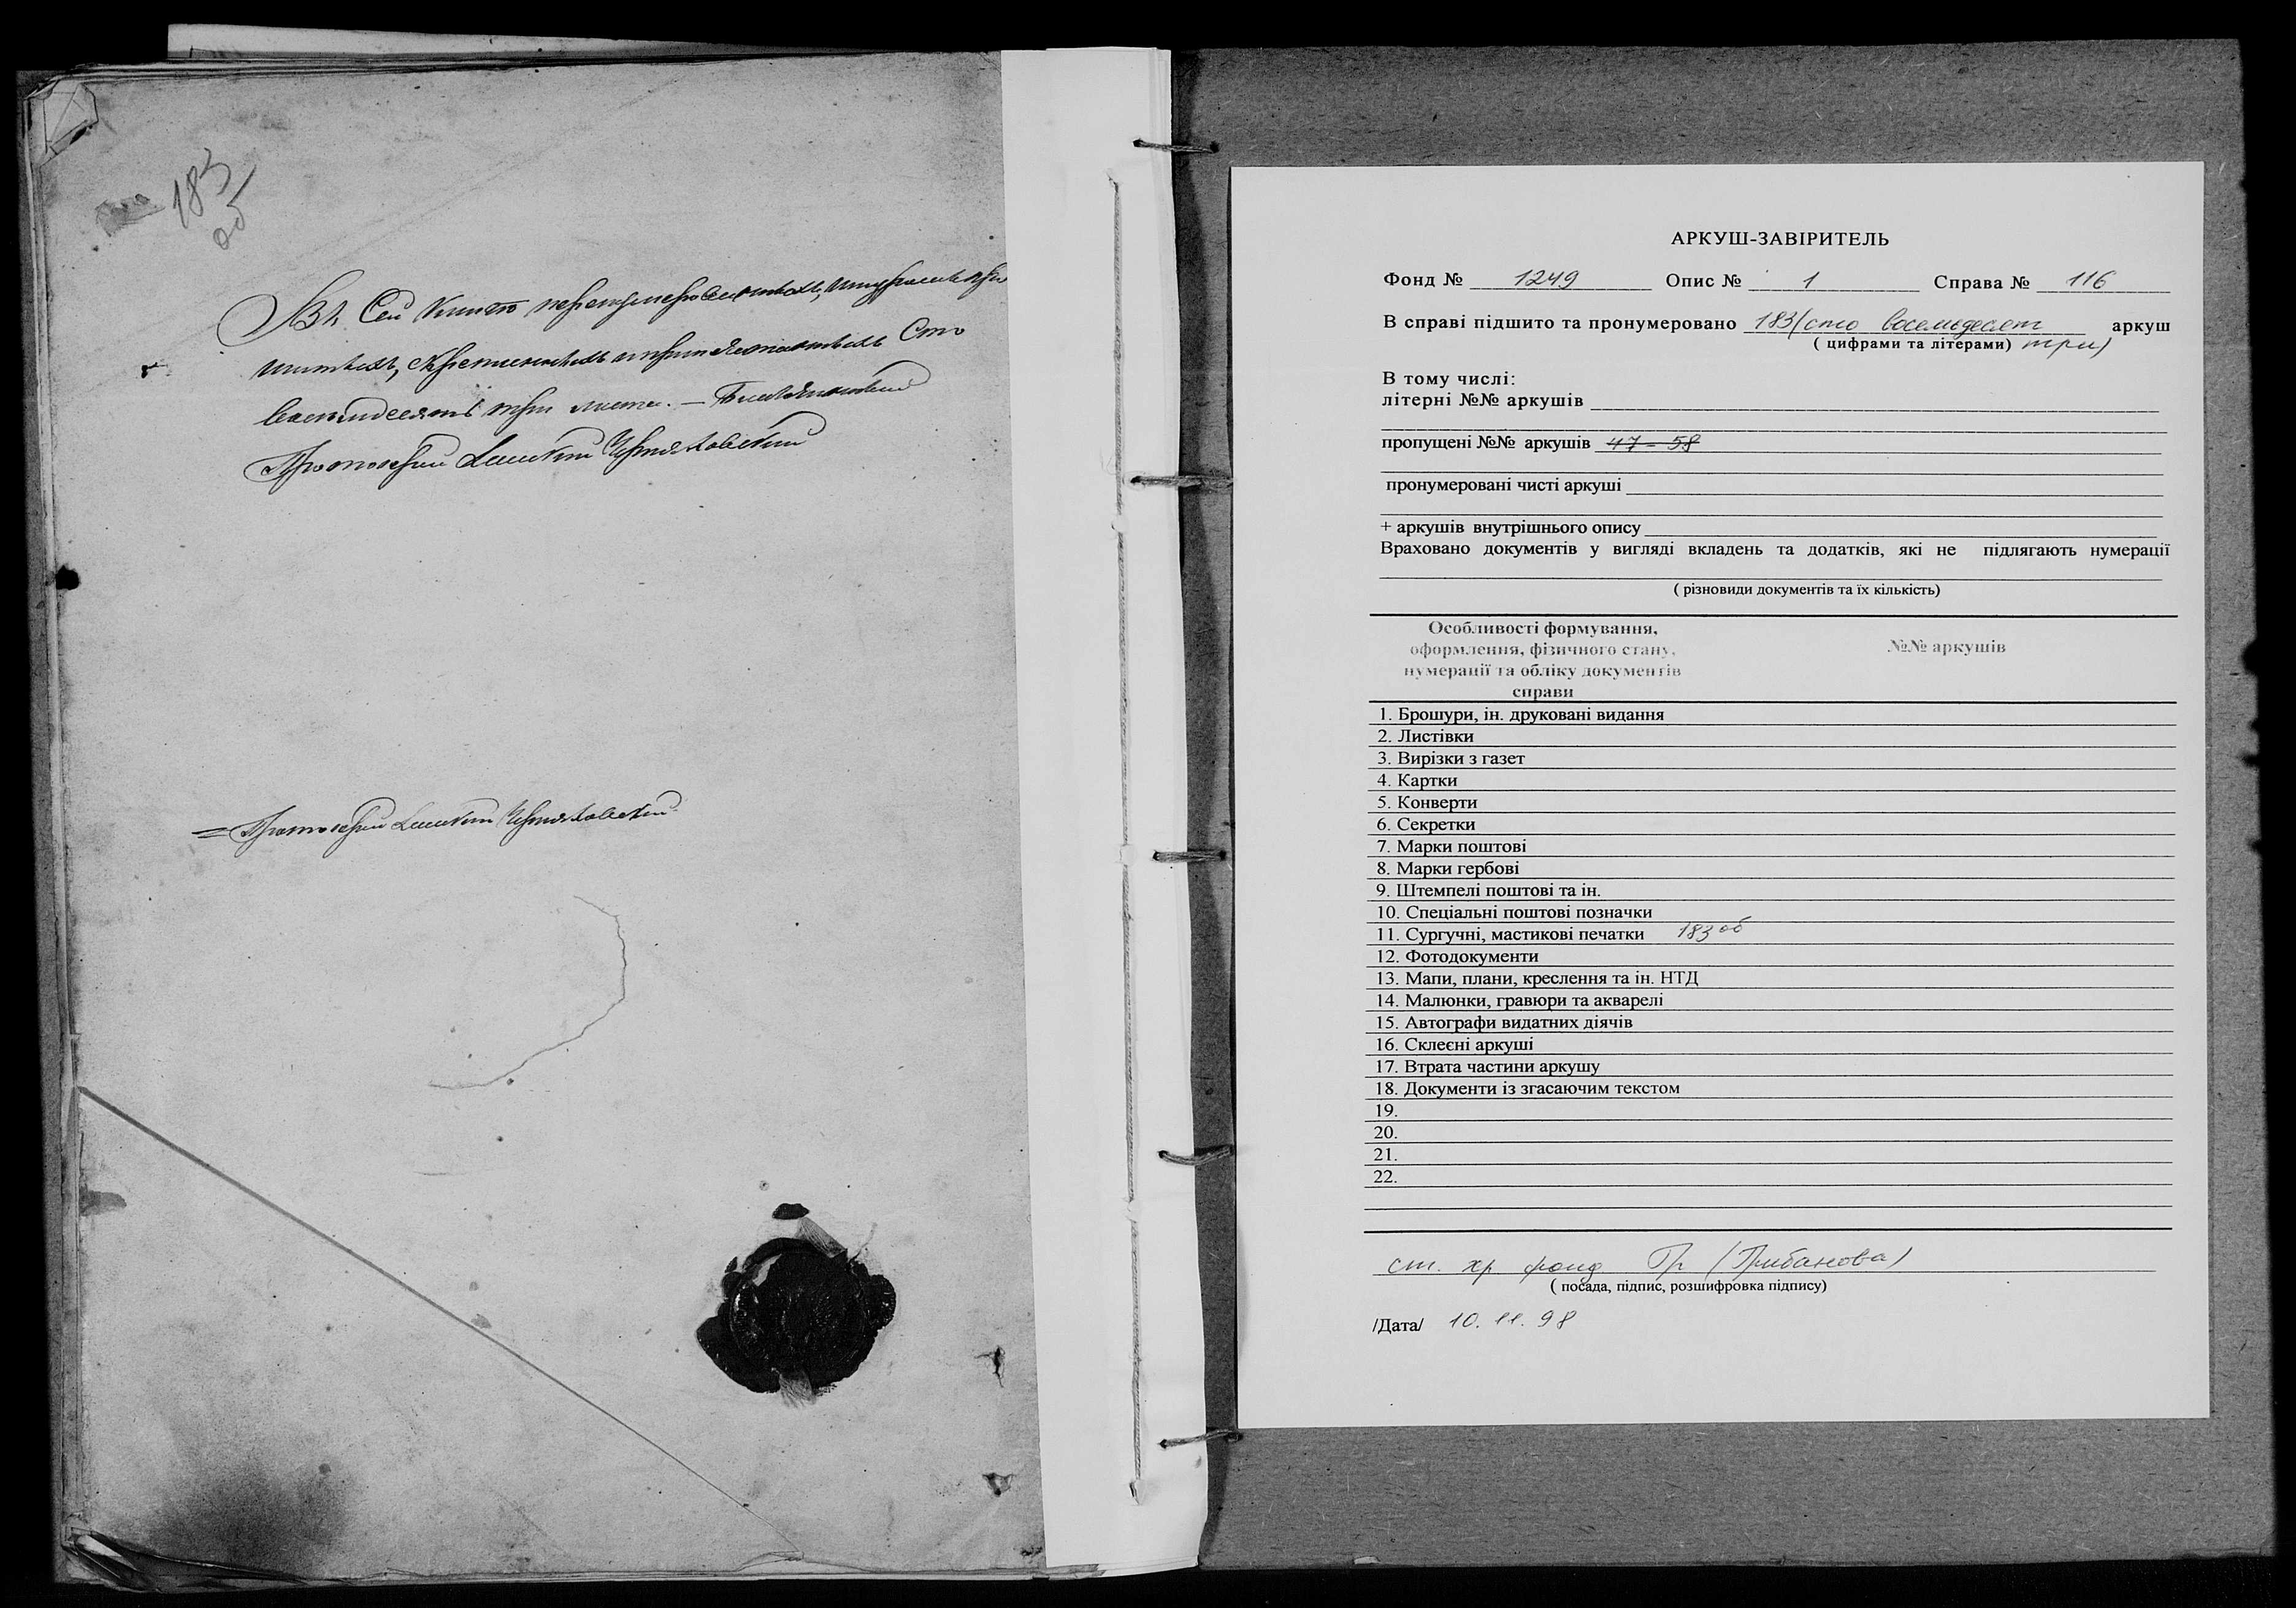 183
об
Въ Сей Книгѣ перенумерованныхъ, шнуромъ про
шитыхъ, скрепленныхъ и припечатанныхъ Сто
восемдесятъ три листа. —
Протоиерей
= Протоиерей
АРКУШ-ЗАВІРИТЕЛЬ
Фонд № 1249 Опис № 1 Справа № 116
В справі підшито та пронумеровано 183 (сто восемьдесят аркуш
( цифрами та літерами) три)
В тому числі:
літерні №№ аркушів
пропущені №№ аркушів 47 - 58
пронумеровані чисті аркуші
+ аркушів внутрішнього опису
Враховано документів у вигляді вкладень та додатків, які не підлягають нумерації
( різновиди документів та їх кількість)
Особливості формування,
оформлення, фізичного стану,
нумерації та обліку документів
справи
№№ аркушів
1. Брошури, ін. друковані видання
2. Листівки
3. Вирізки з газет
4. Картки
5. Конверти
6. Секретки
7. Марки поштові
8. Марки гербові
9. Штемпелі поштові та ін.
10. Спеціальні поштові позначки
11. Сургучні, мастикові печатки 183 об
12. Фотодокументи
13. Мапи, плани, креслення та ін. НТД
14. Малюнки, гравюри та акварелі
15. Автографи видатних діячів
16. Склеєні аркуші
17. Втрата частини аркушу
18. Документи із згасаючим текстом
19.
20.
21.
22.
ст. хр. фонд Гр (Грибанова)
( посада, підпис, розшифровка підпису)
/Дата/ 10. 11. 98